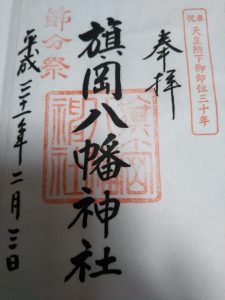 奉祝
天皇陛下御即位三十年
奉拝
旗岡八幡神社
節分祭
平成三十一年二月三日